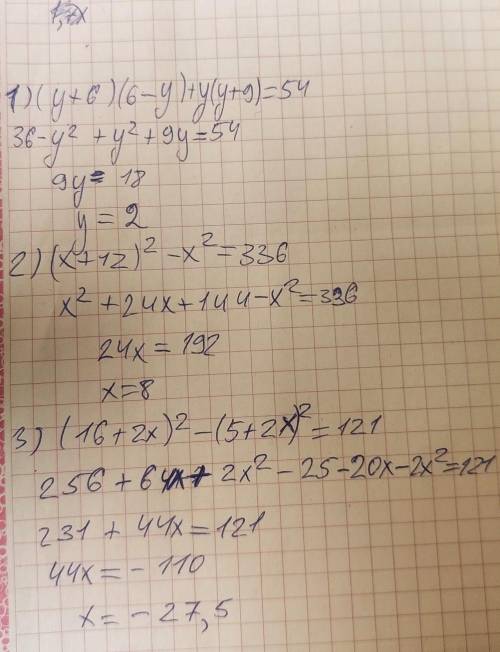 1) (y+6)(6-y)+y(y+9)=54
36-y² + y² + 9y=54
9y= 18
y = 2
2) (x+12)² - x² = 336
x² + 24x + 144 - x² = 336
24x = 192
x=8
3) (16+2x)² - (5+2x)² = 121
256 + 64x + 2x² - 25 - 20x - 2x² = 121
231 + 44x = 121
44x = - 110
x = - 27,5